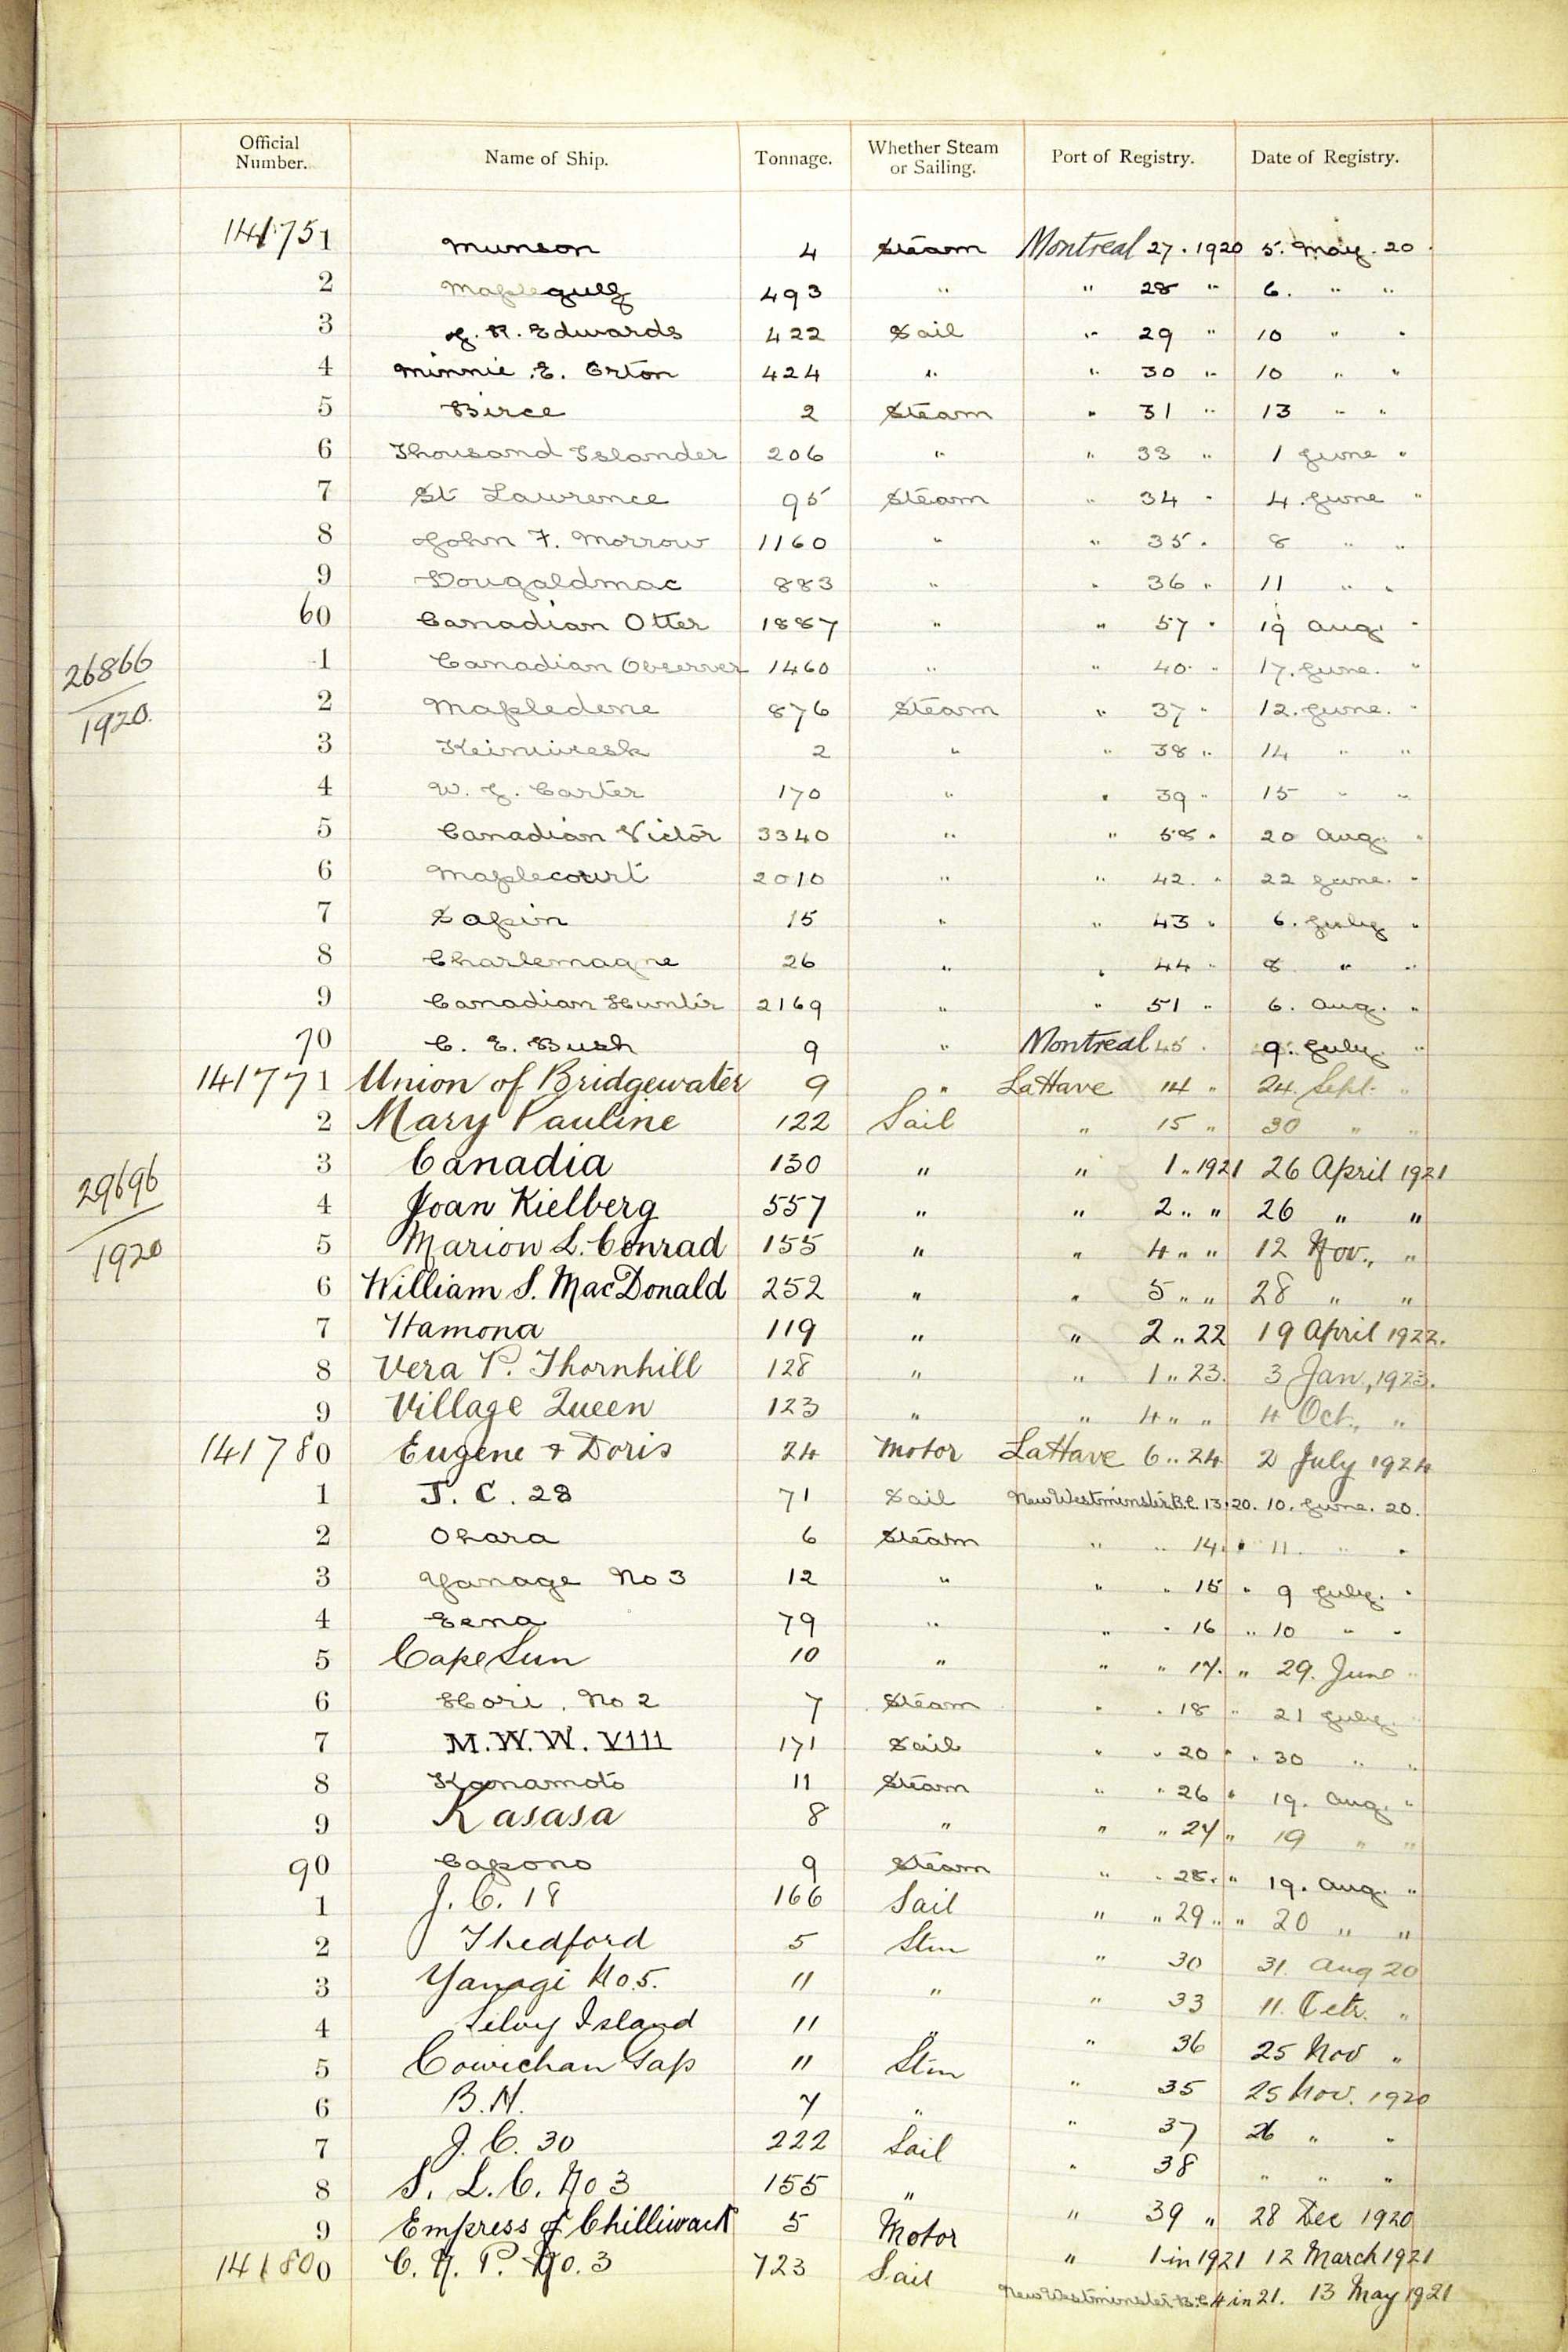 Official Number. Name of Ship. Tonnage. Whether Steam or Sailing. Port of Registry. Date of Registry.
141751 Munson 4 Steam Montreal 27 . 1920 5. May. 20
2 Maplegulf 493 " " 28 " 6. " "
3 J. R. Edwards 422 Sail " 29 " 10 " "
4 Minnie E. Orton 424 " " 30 " 10 " "
5 Birce 2 Steam " 31 " 13 " "
6 Thousand Islander 206 " " 33 " 1 June "
7 St Lawrence 95 Steam " 34 " 4. June "
8 John F. Morrow 1160 " " 35 " 8 " "
9 Dougaldmac 883 " " 36 " 11 " "
60 Canadian Otter 1887 " " 57 " 19 Aug. "
26866/1920.
1 Canadian Observer 1460 " " 40 " 17. June. "
2 Mapledene 876 Steam " 37 " 12. June. "
3 2 " " 38 " 14 " "
4 W. J. Carter 170 " " 39 " 15 " "
5 Canadian Victor 3340 " " 58 " 20 Aug. "
6 Maplecourt 2010 " " 42. " 22 June. "
7 Sapin 15 " " 43 " 6. July "
8 Charlemagne 26 " " 44 " 8 " "
9 Canadian Hunter 2169 " " 51 " 6. Aug. "
70 C. E. Bush 9 " Montreal 45 . 9. July. "
141771 Union of Bridgewater 9 " LaHave 14 " 24. Sept. "
2 Mary Pauline 122 Sail " 15 " 30 " "
3 Canadia 130 " " 1 " 1921 26 April 1921
29696/1920
4 Joan Kielberg 557 " " 2 " " 26 " "
5 Marion L. Conrad 155 " " 4 " " 12 Nov., "
6 William S. MacDonald 252 " " 5 " " 28 " "
7 Hamona 119 " " 2 " 22 19 April 1922.
8 Vera P. Thornhill 128 " " 1 " 23. 3 Jan, 1923.
9 Village Queen 123 " " 4 " " 4 Oct., "
141780 Eugene & Doris 24 Motor LaHave 6 " 24 2 July 1924
1 J. C. 28 71 Sail New Westminster B.C. 13.20. 10. June. 20.
2 Ohara 6 Steam " " 14. " 11. " "
3 Yanage No 3 12 " " " 15 " 9 July. "
4 Eena 79 " " " 16 " 10 " "
5 Cape Sun 10 " " " 17. " 29. June "
6 Hori. No 2 7 Steam " " 18 " 21 July. "
7 M. W. W. VIII 171 Sail " " 20 " " 30 " "
8 Koonamoto 11 Steam " " 26 " 19. Aug. "
9 Kasasa 8 " " " 27 " 19 " "
90 Capono 9 Steam " " 28. " 19. Aug. "
1 J. C. 18 166 Sail " " 29 " " 20 " "
2 Thedford 5 Stm " 30 31. Aug 20
3 Yanagi No. 5. 11 " " 33 11. Octr. "
4 Island 11 " " 36 25 Nov "
5 Cowichan Gap 11 Stm " 35 25 Nov. 1920
6 B.N. 7 " " 37 26 " "
7 J. C. 30 222 Sail " 38 " " "
8 S. L. C. No 3 155 " " 39 " 28 Dec 1920
9 Empress of Chilliwack 5 Motor " 1 in 1921 12 March 1921
141800 C. N. P. No. 3 723 Sail New Westminster B.C. 4 in 21. 13 May 1921